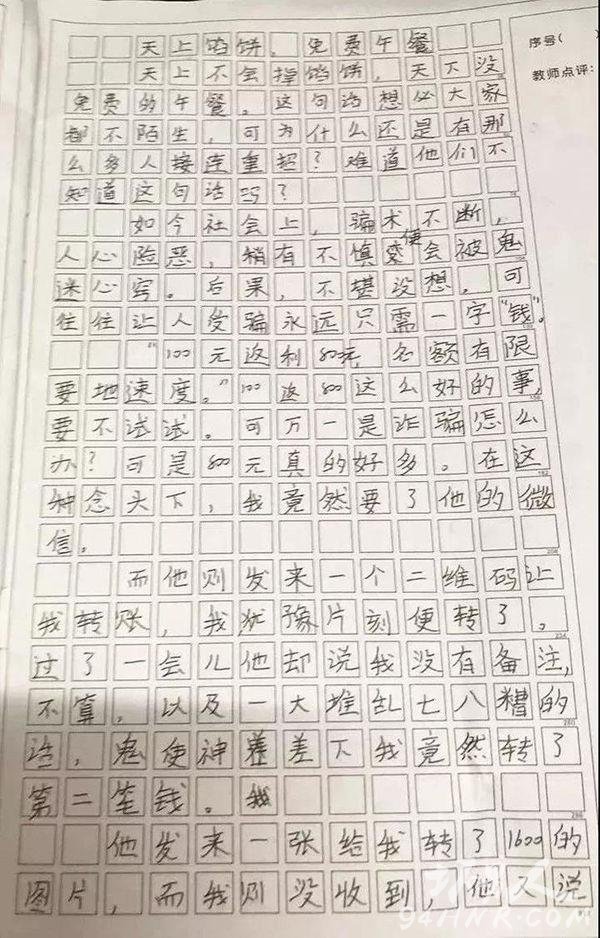 序号( )
教师点评:
天上馅饼，免费午餐
天上不会掉馅饼，天下没
免费的午餐。这句话想必大家
都不陌生，可为什么还是有那
么多人接连重招？难道他们不
知道这句话吗？
如今社会上，骗术不断，
人心险恶，稍有不慎便会被鬼
迷心窍。后果，不堪设想。可
往往让人受骗永远只需一字“钱”。
“100元返利800元，名额有限
要地速度。”100返800这么好的事，
要不试试。可万一是诈骗怎么
办？可是800元真的好多。在这
种念头下，我竟然要了他的微
信。
而他则发来一个二维码让
我转账，我犹豫片刻便转了。
过了一会儿他却说我没有备注，
不算，以及一大堆乱七八糟的
话，鬼使神差下我竟然转了
第二笔钱。
他发来一张给我转了1600的
图片，而我则没收到，他又说
94HNR.COM